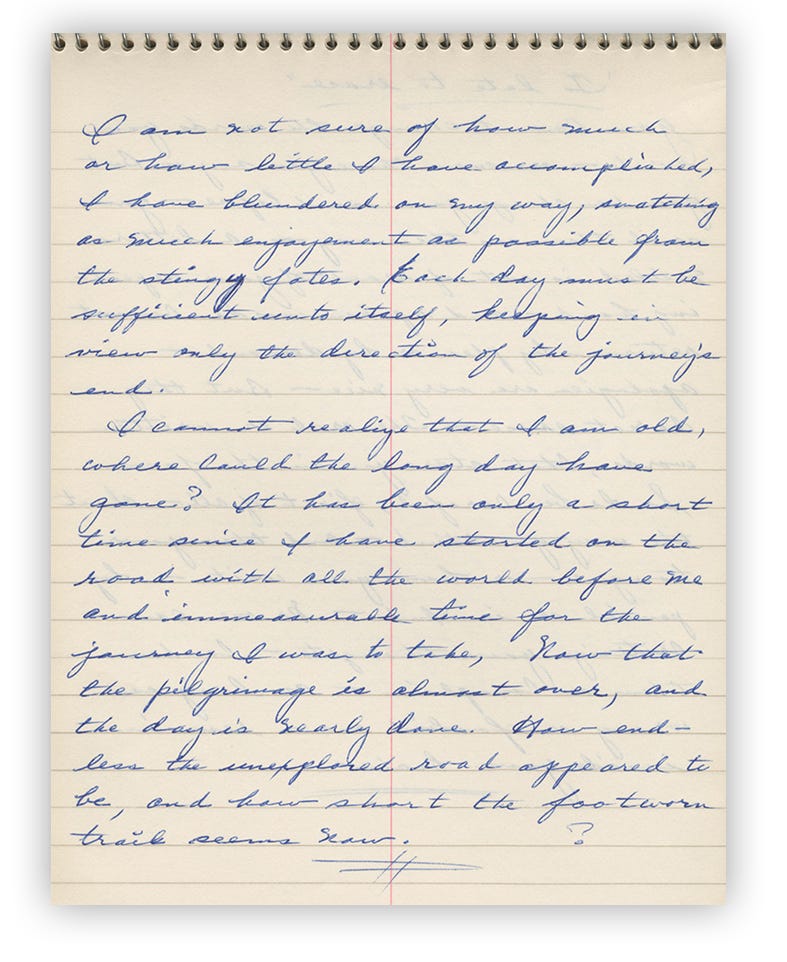 I am not sure of how much
or how little I have accomplished,
I have blundered on my way, snatching
as much enjoyement as possible from
the stingy fates. Each day must be
sufficient unto itself, keeping in
view only the direction of the journey's
end.
I cannot realize that I am old,
where could the long day have
gone? It has been only a short
time since I have started on the
road with all the world before me
and immeasurable time for the
journey I was to take, Now that
the pilgrimage is almost over, and
the day is nearly done. How end-
less the unexplored road appeared to
be, and how short the footworn
trail seems now. ?